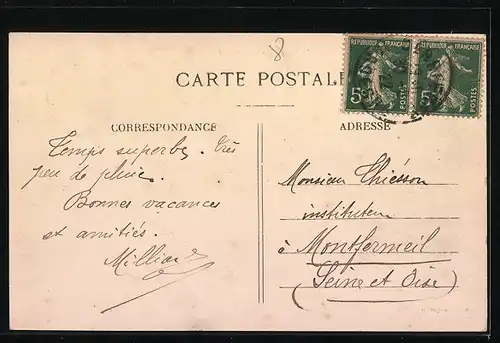 CARTE POSTALE
REPUBLIQUE FRANÇAISE
REPUBLIQUE FRANÇAISE
5c
POSTES
5c
POSTES
CORRESPONDANCE
ADRESSE
Temps superbe. Très
peu de pluie.
Bonnes vacances
et amitiés.
Monsieur
instituteur
à Montfermeil
(Seine et Oise)